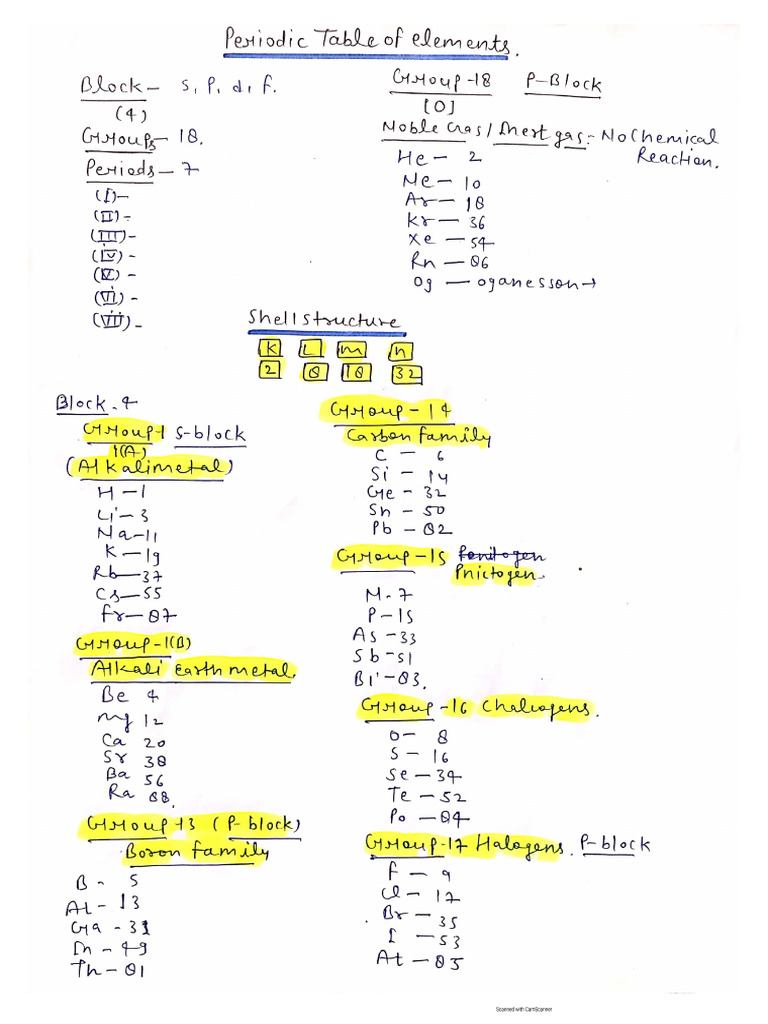 Periodic Table of elements.
Block - s, p, d, f.
(4)
Groups - 18.
Periods - 7
(I) -
(II) -
(III) -
(IV) -
(V) -
(VI) -
(VII) -
Group-18 P-Block
[0]
Noble Gas / Inert gas :- No Chemical
Reaction.
He - 2
Ne - 10
Ar - 18
Kr - 36
Xe - 54
Rn - 86
Og - oganesson →
Shell structure
K L m n
2 8 18 32
Block - 4
Group-1 S-block
1(A)
(Alkalimetal)
H - 1
Li - 3
Na - 11
K - 19
Rb - 37
Cs - 55
Fr - 87
Group-1(B)
Alkali earth metal
Be 4
mg 12
Ca 20
Sr 38
Ba 56
Ra 88.
Group-13 (P-block)
Boron family
B - 5
Al - 13
Ga - 31
In - 49
Th - 81
Group - 14
Carbon family
C - 6
Si - 14
Ge - 32
Sn - 50
Pb - 82
Group - 15
Pnictogen.
N - 7
P - 15
As - 33
Sb - 51
Bi - 83.
Group - 16 Chalcogens.
O - 8
S - 16
Se - 34
Te - 52
Po - 84
Group-17 Halogens. P-block
F - 9
Cl - 17
Br - 35
I - 53
At - 85
Scanned with CamScanner